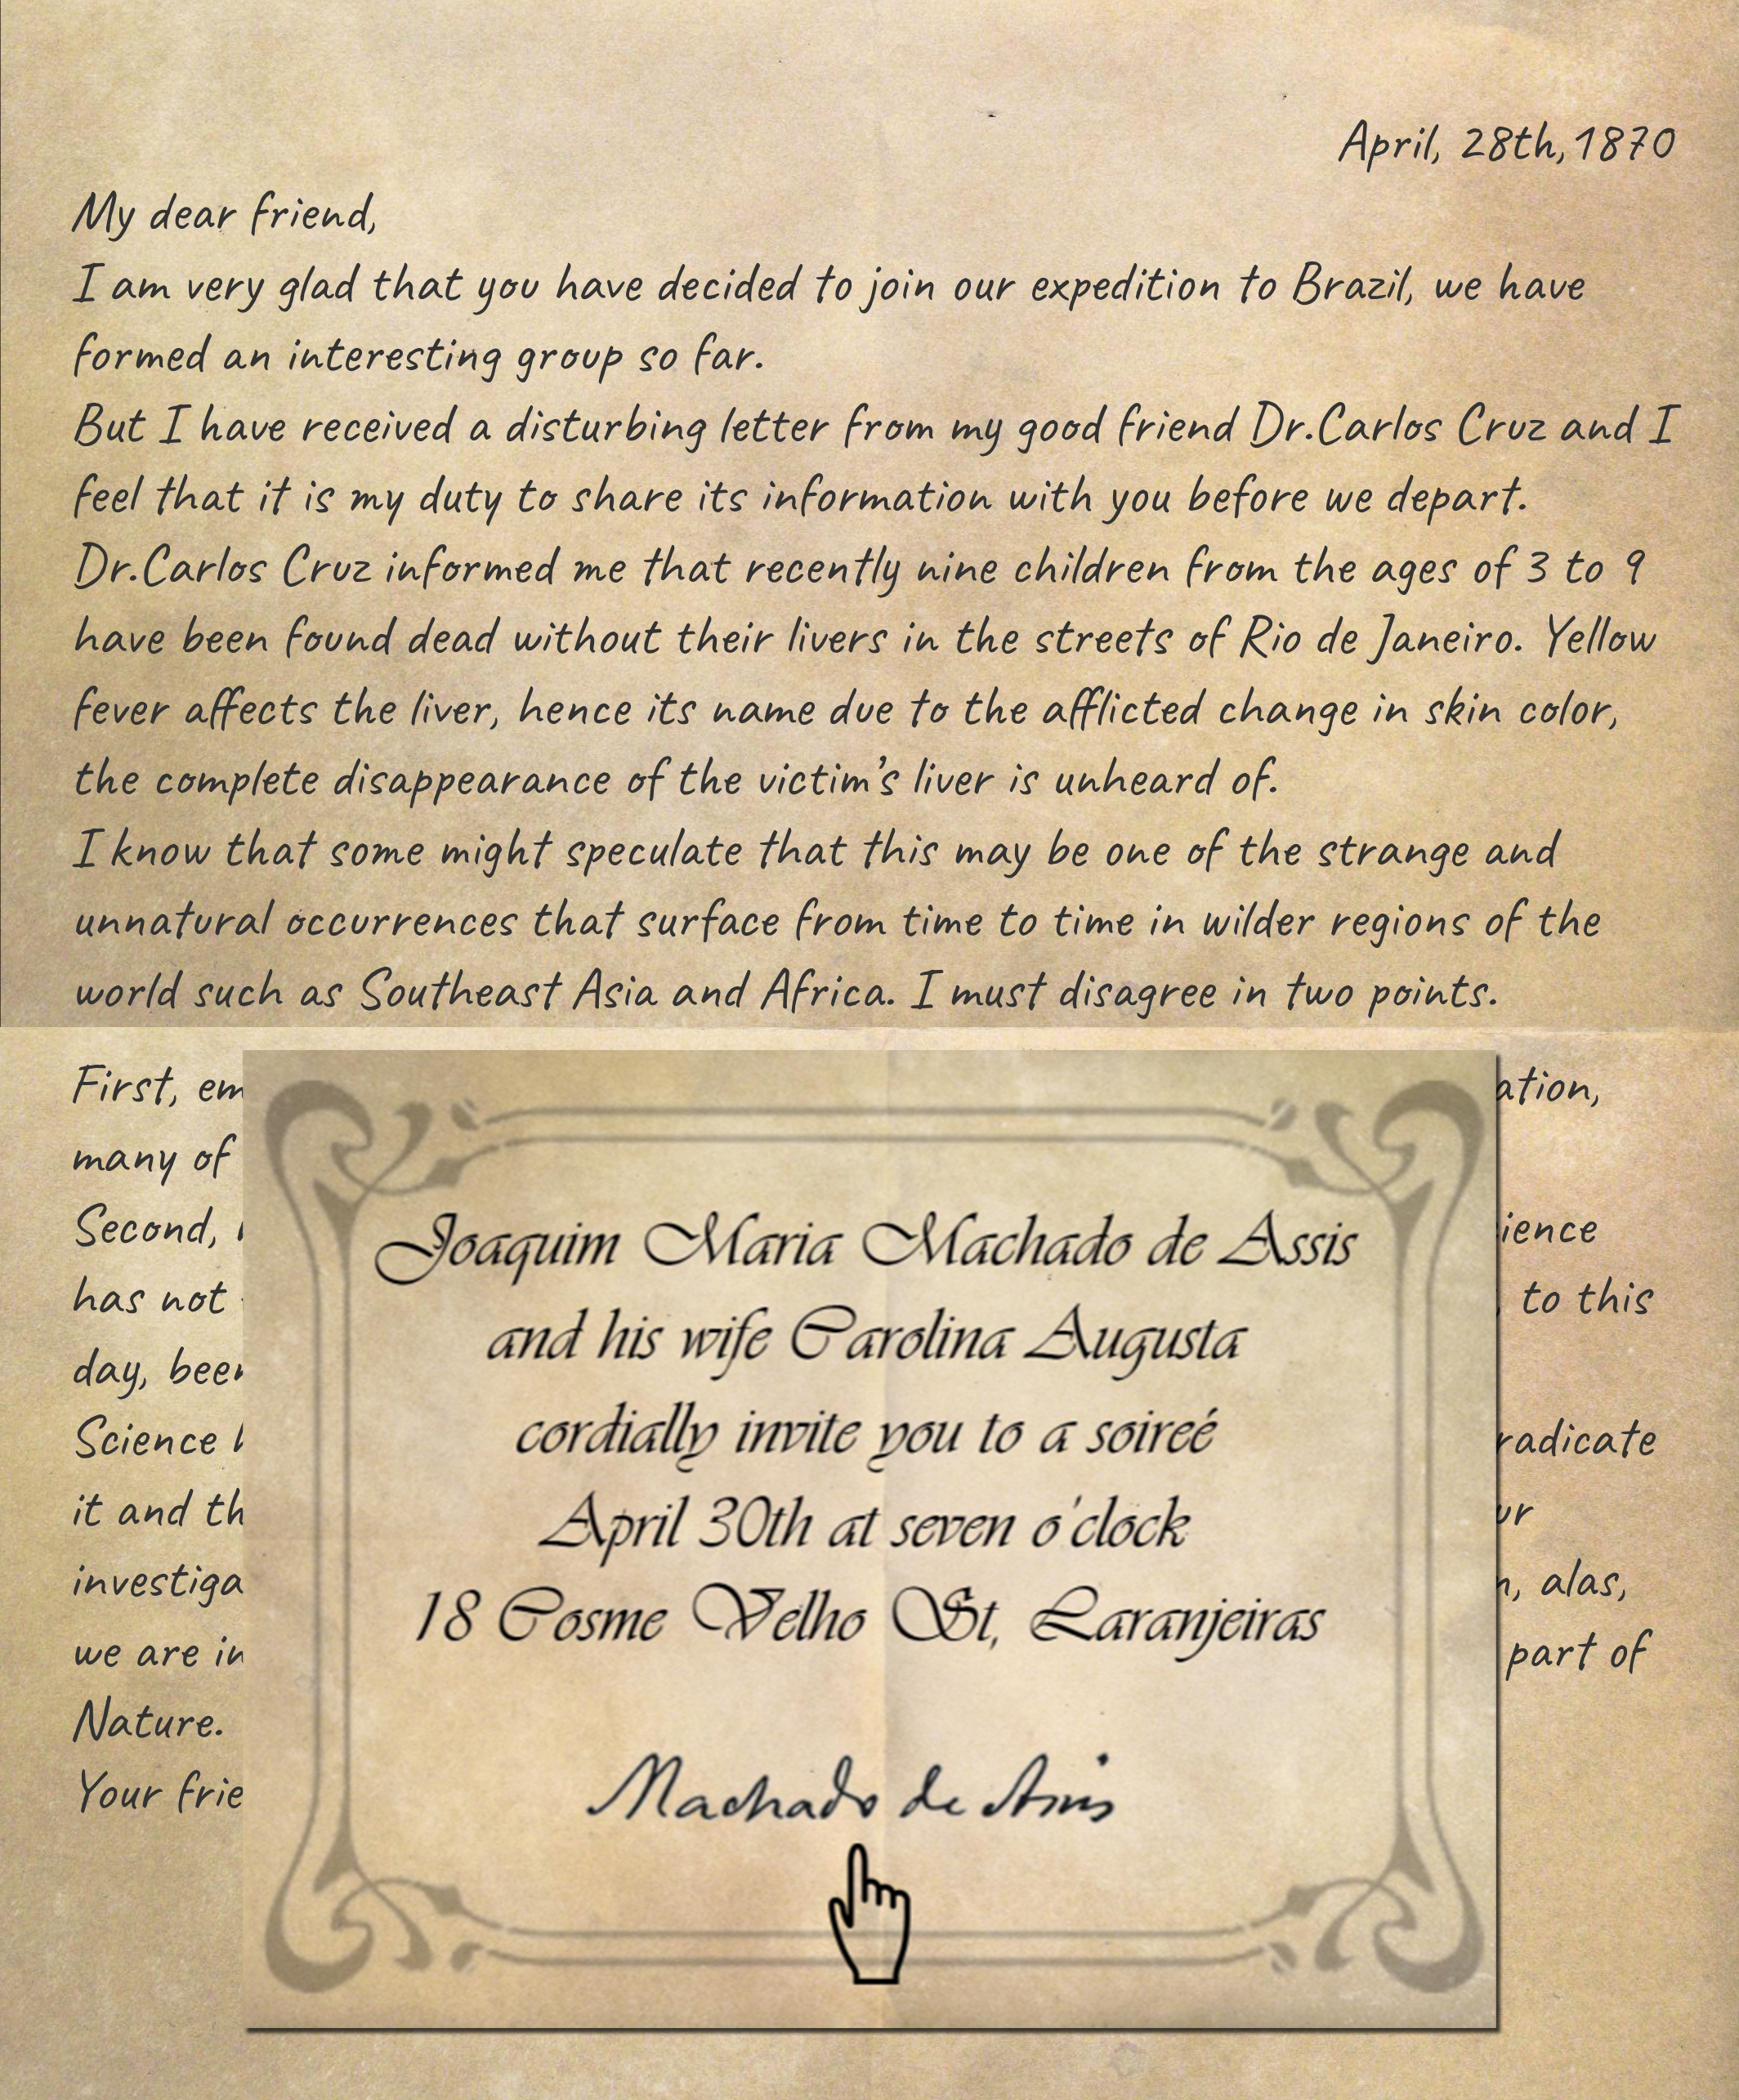 April, 28th, 1870
My dear friend,
I am very glad that you have decided to join our expedition to Brazil, we have
formed an interesting group so far.
But I have received a disturbing letter from my good friend Dr.Carlos Cruz and I
feel that it is my duty to share its information with you before we depart.
Dr.Carlos Cruz informed me that recently nine children from the ages of 3 to 9
have been found dead without their livers in the streets of Rio de Janeiro. Yellow
fever affects the liver, hence its name due to the afflicted change in skin color,
the complete disappearance of the victim's liver is unheard of.
I know that some might speculate that this may be one of the strange and
unnatural occurrences that surface from time to time in wilder regions of the
world such as Southeast Asia and Africa. I must disagree in two points.
First,
many of
Second,
has not to this
day,
Science
it and
alas,
we are part of
Nature.
Your
Joaquim Maria Machado de Assis
and his wife Carolina Augusta
cordially invite you to a soireé
April 30th at seven o'clock
18 Cosme Velho St, Laranjeiras
Machado de Assis